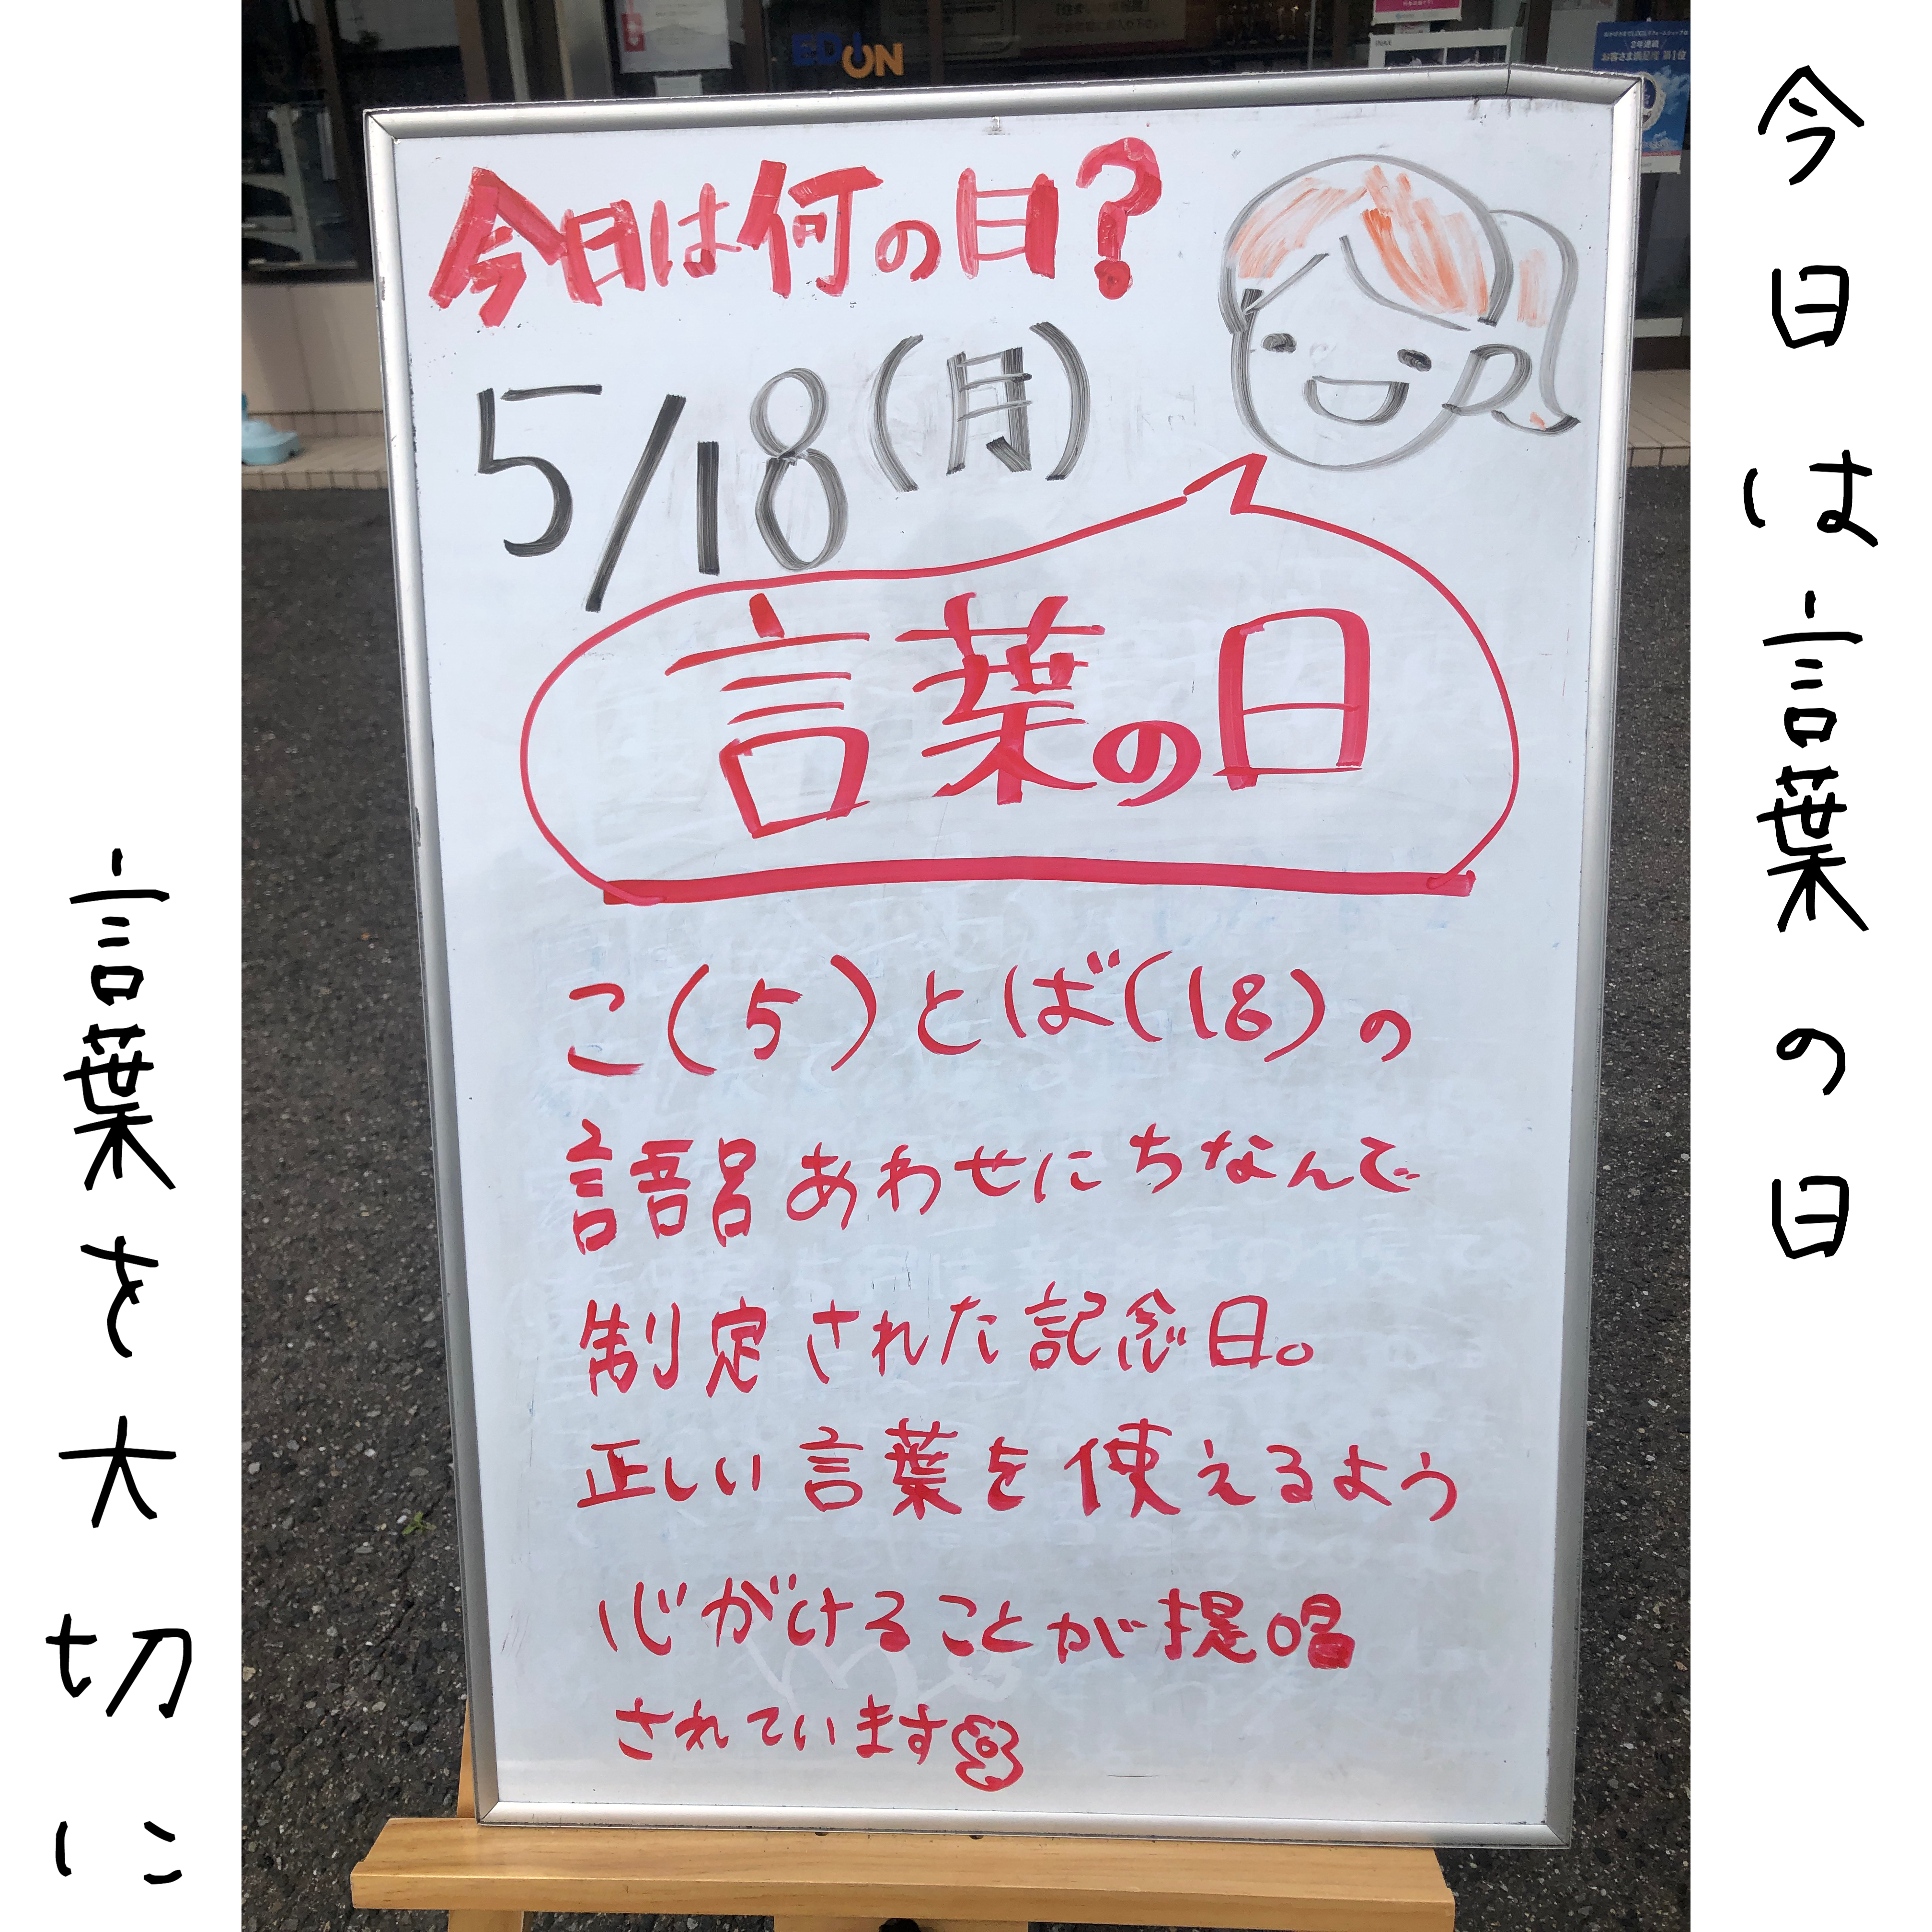 今日は言葉の日
EDION
2年連続
お客さま満足度 第1位
今日は何の日?
5/18(月)
言葉の日
こ(5)とば(18)の
語呂あわせにちなんで
制定された記念日。
正しい言葉を使えるよう
心がけることが提唱
されています
言葉を大切に